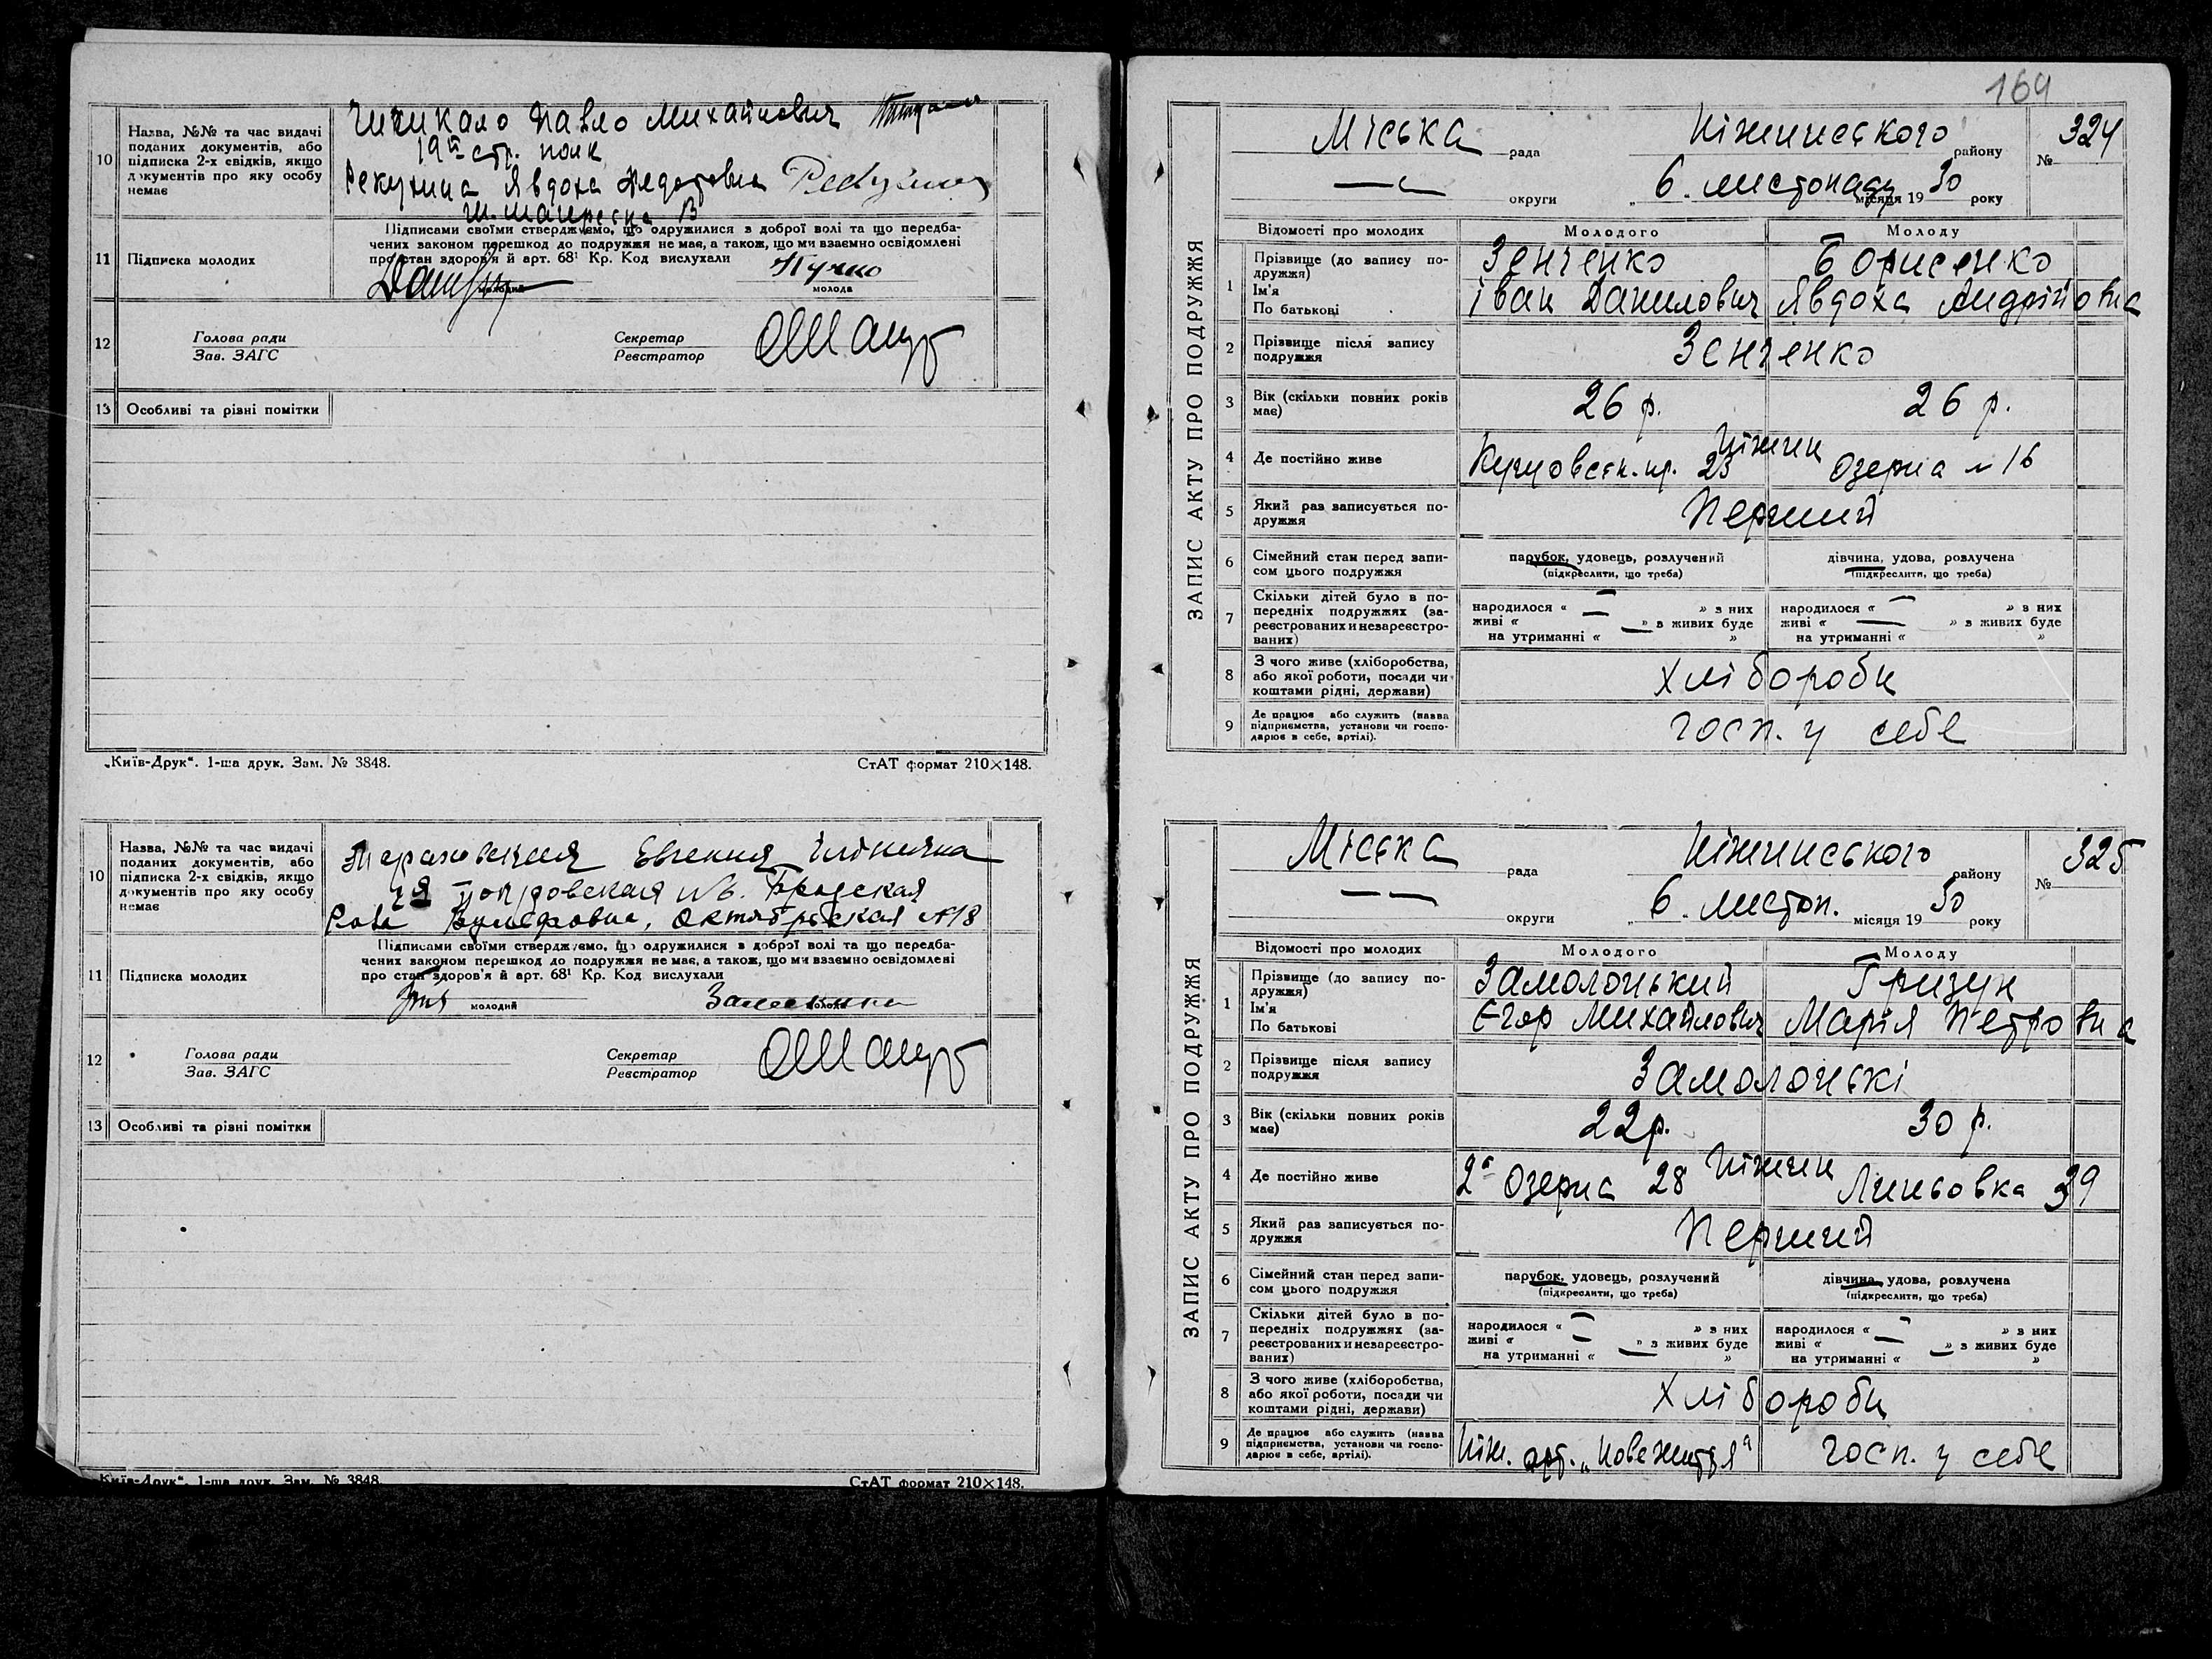 10 Назва, №№ та час видачі
поданих документів, або
підписка 2-х свідків, якщо
документів про яку особу
немає
Чичикало Павло Михайлович
19й стр. полк
Явдоха Федотовна
11 Підписка молодих
Підписами своїми стверджуємо, що одружилися з доброї волі та що передба-
чених законом перешкод до подружжя не має, а також, що ми взаємно освідомлені
про стан здоров'я й арт. 68¹ Кр. Код вислухали
молодий молода
12 Голова ради Секретар
Зав. ЗАГС Реєстратор
13 Особливі та різні помітки
„Київ-Друк“. 1-ша друк. Зам. № 3848. СтАТ формат 210×148.
10 Назва, №№ та час видачі
поданих документів, або
підписка 2-х свідків, якщо
документів про яку особу
немає
Евгения
№6. Бродская
Роза Вульфовна, Октябрьская №18
11 Підписка молодих
Підписами своїми стверджуємо, що одружилися з доброї волі та що передба-
чених законом перешкод до подружжя не має, а також, що ми взаємно освідомлені
про стан здоров'я й арт. 68¹ Кр. Код вислухали
молодий молода
12 Голова ради Секретар
Зав. ЗАГС Реєстратор
13 Особливі та різні помітки
„Київ-Друк“. 1-ша друк. Зам. № 3848. СтАТ формат 210×148.
169
ЗАПИС АКТУ ПРО ПОДРУЖЖЯ
Міська рада Ніжинського району № 324
— округи „6. листопаду місяця 1930 року
Відомості про молодих Молодого Молоду
1 Прізвище (до запису по-
дружжя) Зенченко Борисенко
Ім'я
По батькові Іван Данилович Явдоха Андрійовна
2 Прізвище після запису
подружжя Зенченко
3 Вік (скільки повних років
має) 26 р. 26 р.
4 Де постійно живе Ніжин 23 Озерна № 16
5 Який раз записується по-
дружжя Перший
6 Сімейний стан перед запи-
сом цього подружжя
парубок, удовець, розлучений дівчина, удова, розлучена
(підкреслити, що треба) (підкреслити, що треба)
7 Скільки дітей було в по-
передніх подружжях (за-
реєстрованих и незареєстро-
ваних)
народилося « — » з них народилося « — » з них
живі « — » з живих буде живі « — » з живих буде
на утриманні « » на утриманні « »
8 З чого живе (хліборобства,
або якої роботи, посади чи
коштами рідні, держави) хлібороби
9 Де працює або служить (назва
підприємства, установи чи госпо-
дарює в себе, артілі). госп. у себе
ЗАПИС АКТУ ПРО ПОДРУЖЖЯ
Міська рада Ніжинського району № 325
— — округи „6. листоп. місяця 1930 року
Відомості про молодих Молодого Молоду
1 Прізвище (до запису по-
дружжя) Замолоцький Гризун
Ім'я
По батькові Єгор Михайлович Марія Петровна
2 Прізвище після запису
подружжя Замолоцькі
3 Вік (скільки повних років
має) 22 р. 30 р.
4 Де постійно живе 2а Озерна 28 Ніжин Линьовка 39
5 Який раз записується по-
дружжя Перший
6 Сімейний стан перед запи-
сом цього подружжя
парубок, удовець, розлучений дівчина, удова, розлучена
(підкреслити, що треба) (підкреслити, що треба)
7 Скільки дітей було в по-
передніх подружжях (за-
реєстрованих и незареєстро-
ваних)
народилося « — » з них народилося « — » з них
живі « — » з живих буде живі « — » з живих буде
на утриманні « » на утриманні « »
8 З чого живе (хліборобства,
або якої роботи, посади чи
коштами рідні, держави) хлібороби
9 Де працює або служить (назва
підприємства, установи чи госпо-
дарює в себе, артілі). Ніж. арт. „Нове життя“ госп. у себе